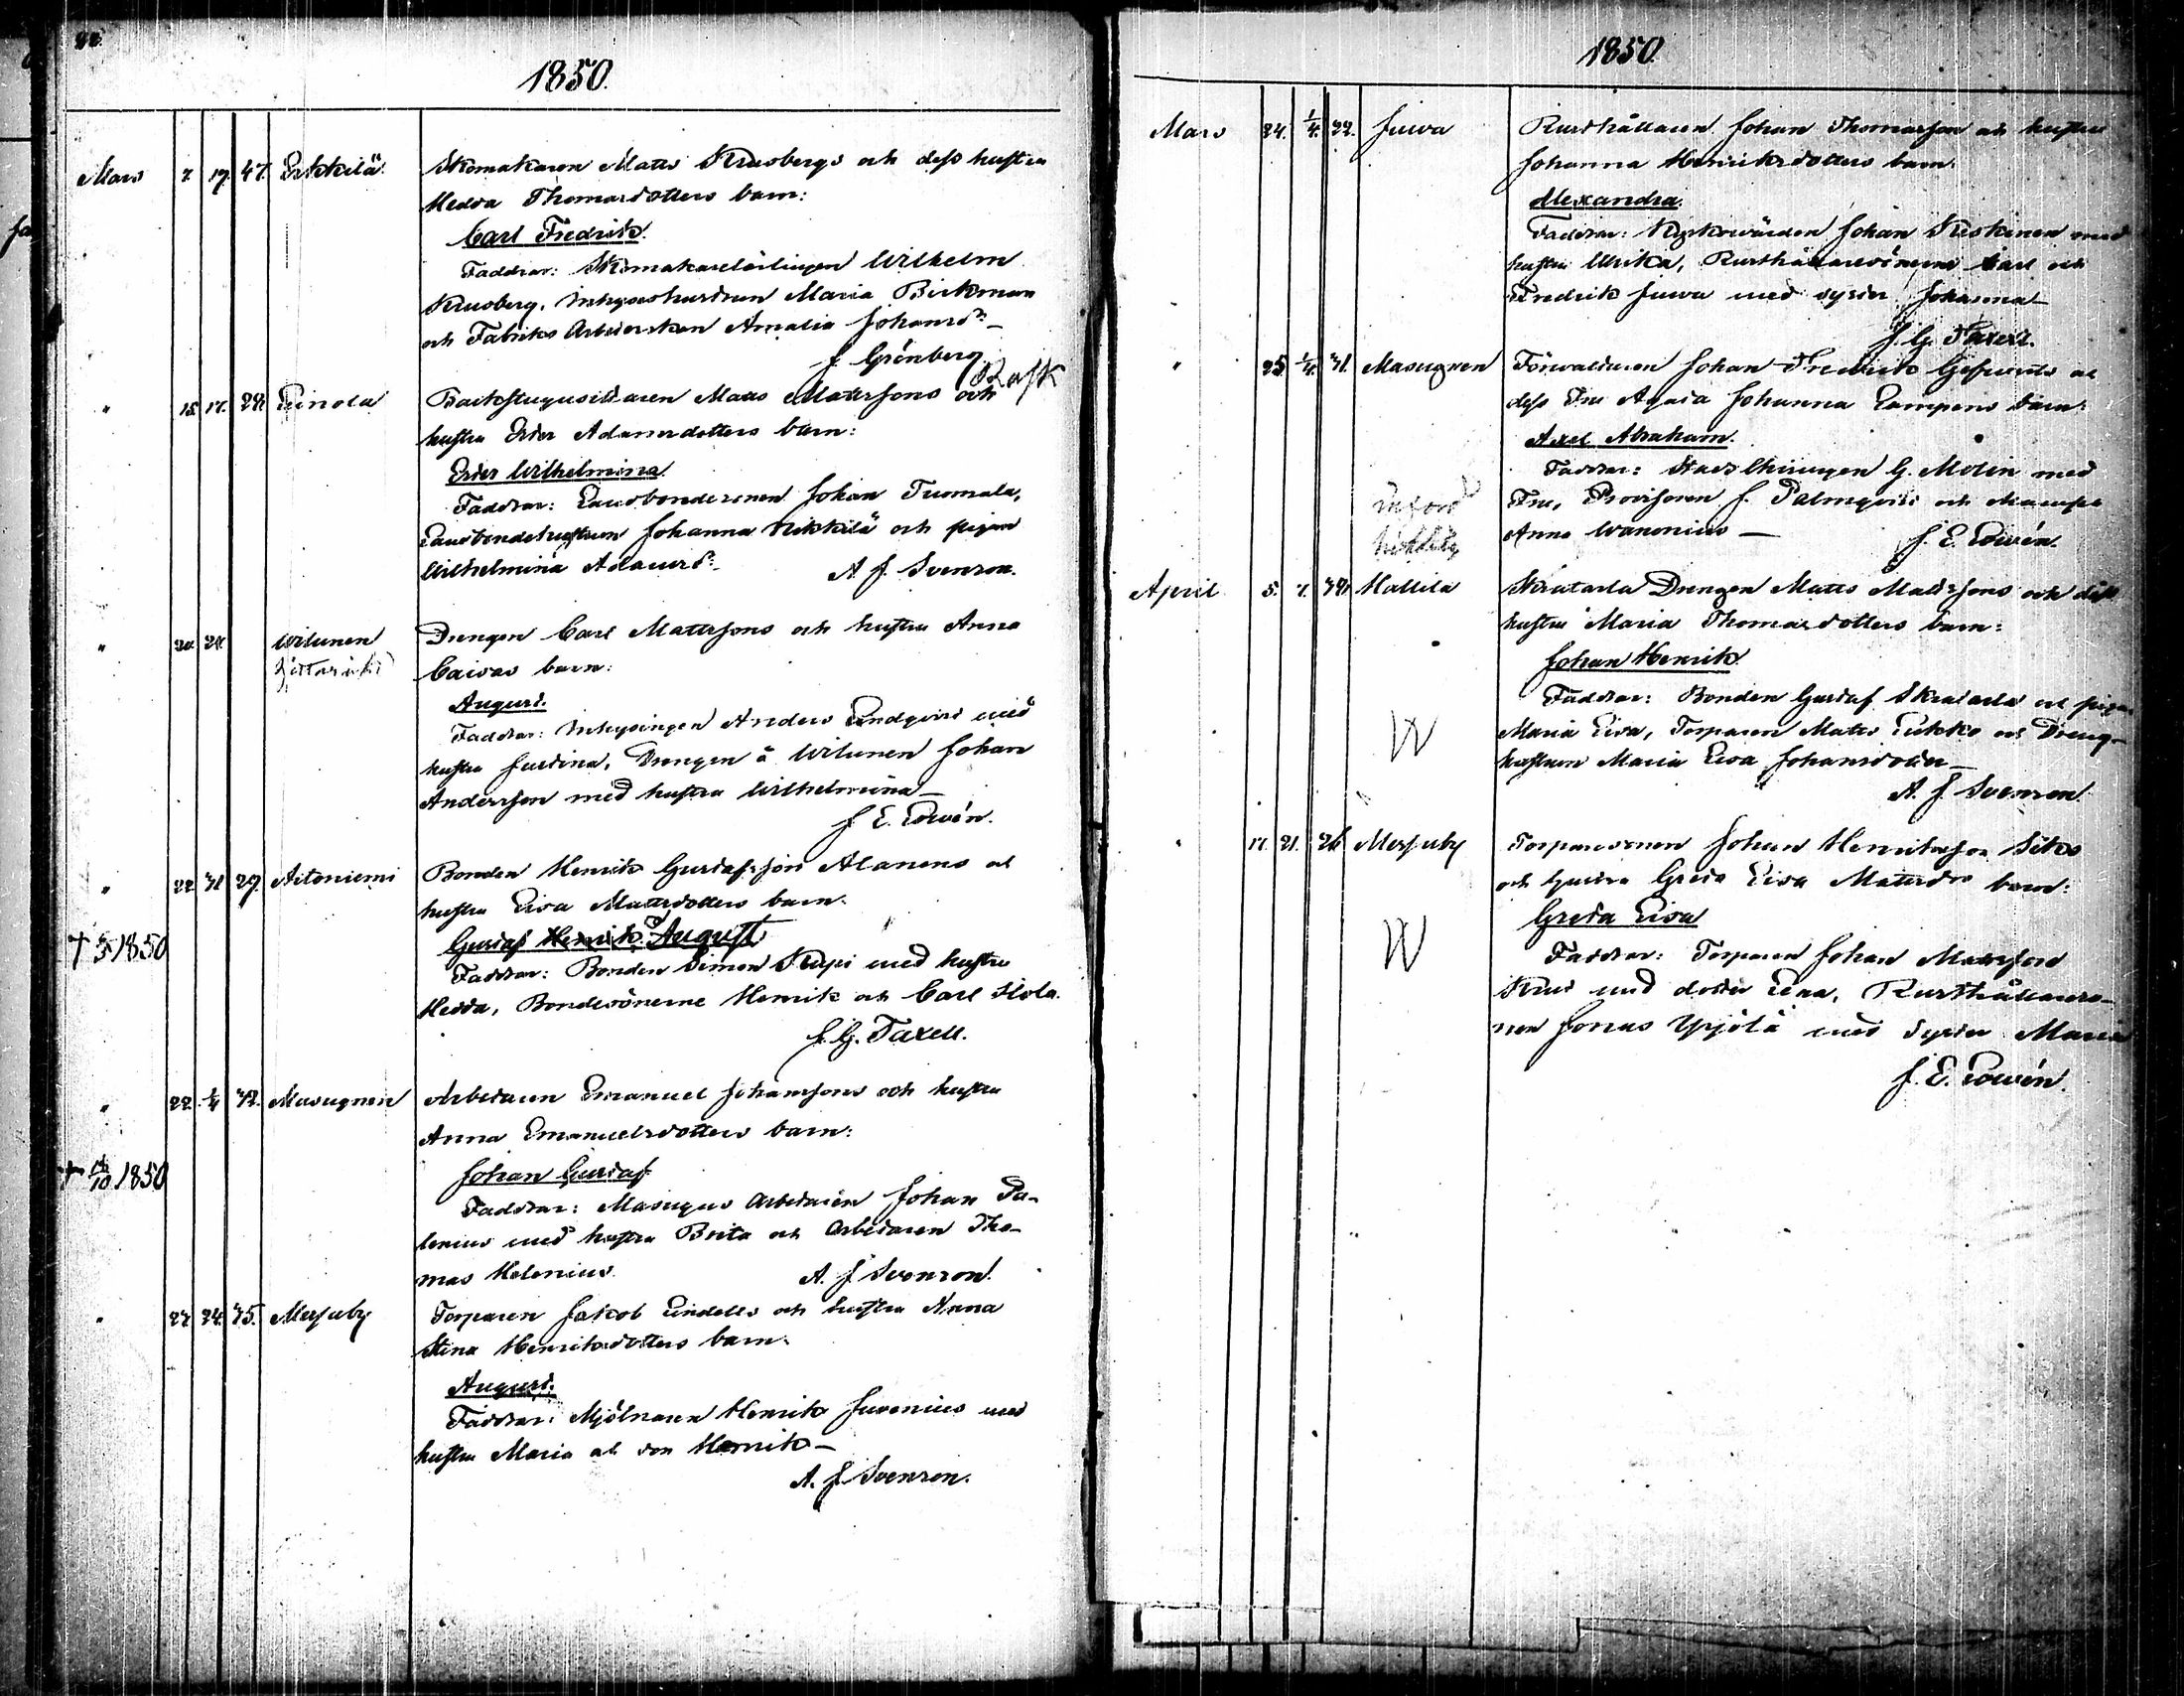 1850.
Mars 7. 17. 47. Erkkilä. Skomakaren Matts Krusbergs och dess hustru
Hedda Thomasdotters barn:
Carl Fredrik.
Faddrar: Skomakarelärlingen Wilhelm
Krusberg, Inhyseshustrun Maria Birkman
och Fabriks Arbeterskan Amalia Johansdr
J. Grönberg.
" 15. 17. 28. Backstugusittaren Matts Mattssons och Rask
hustru Ester Adamsdotters barn:
Ester Wilhelmina.
Faddrar: Landbondesonen Johan Tuomala,
Landbondehustrun Johanna Nikkilä och pigan
Wilhelmina Adamsdr. A. J. Svenson.
" 20. 24. Witunen Drengen Carl Mattssons och hustru Anna
Caisas barn:
August.
Faddrar: Inhysingen Anders Lindqvist med
hustru Justina, Drengen å Witunen Johan
Andersson med hustru Wilhelmina
J. E. Lowén.
" 22. 31. 29. Aitoniemi Bonden Henrik Gustafsson Alanens och
hustru Eva Mattsdotters barn.
Gustaf Henrik August
† 1850
Faddrar: Bonden Simon Kupi med hustru
Hedda, Bondesönerne Henrik och Carl Isola.
J. G. Taxell.
" 22. 1/4 32. Masugnen Arbetaren Emanuel Johanssons och hustru
Anna Emanuelsdotters barn:
† 1850
Johan Gustaf
Faddrar: Masugns Arbetaren Johan Pa-
lenius med hustru Brita och Arbetaren Tho-
mas Helenius. A. J. Svenson.
" 24. 35. Messuby Torparen Jakob Lindells och hustru Anna
Stina Henriksdotters barn.
August.
Faddrar: Mjölnaren Henrik Juvenius med
hustru Maria och son Henrik
A. J. Svenson.
1850.
Mars 24. 1/4. 22. Juwa Rusthållaren Johan Thomasson och hustru
Johanna Henriksdotters barn.
Alexandra.
Faddrar: Kyrkovärden Johan Kiskinen med
hustru Ulrika, Rusthållaresönerne Carl och
Fredrik Juwa med syster Johanna
J. G. Taxell.
" 25. 1/4. 31. Masugnen Förvaltaren Johan Fredrik och
dess Fru Agata Johanna barn:
Axel Abraham.
Faddrar: G. Molin med
Fru, Provisoren J. Palmqvist och Mamsell
Anna Wanonius J. E. Lowén.
April 5. 7. 34. Hallila Skratarla Drengen Matts Mattssons och dess
hustru Maria Thomasdotters barn:
Johan Henrik.
Faddrar: Bonden Gustaf Skratarla och pigan
W
Maria Eva, Torparen Matts och Dreng-
hustrun Maria Eva Johansdotter
A. J. Svenson.
" 17. 21. 36. Messuby Torparesonen Johan Henriksson Siks
och hustru Greta Eva Mattsdrs barn:
Greta Eva
W
Faddrar: Torparen Johan Mattsson
med dotter Lena, Rusthållareso-
nen Jonas Ypjölä med Syster Maria
J. E. Lowén.